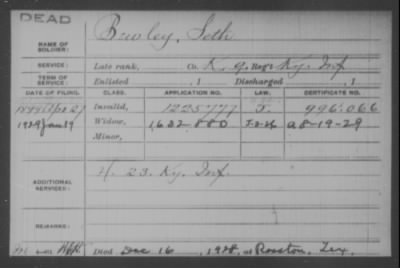 DEAD
NAME OF SOLDIER: Bewley, Seth
SERVICE: Late rank, Co. K, 9 Reg't Ky. Inf
TERM OF SERVICE: Enlisted , 1 Discharged , 1
DATE OF FILING. CLASS. APPLICATION NO. LAW. CERTIFICATE NO.
Invalid, 1225777 996.066
1929 Jan 19 Widow, 1,632-880 A8-19-29
Minor,
ADDITIONAL SERVICES: H. 23. Ky. Inf.
REMARKS:
Died Dec 16, 1928, at Rosston, Tex.